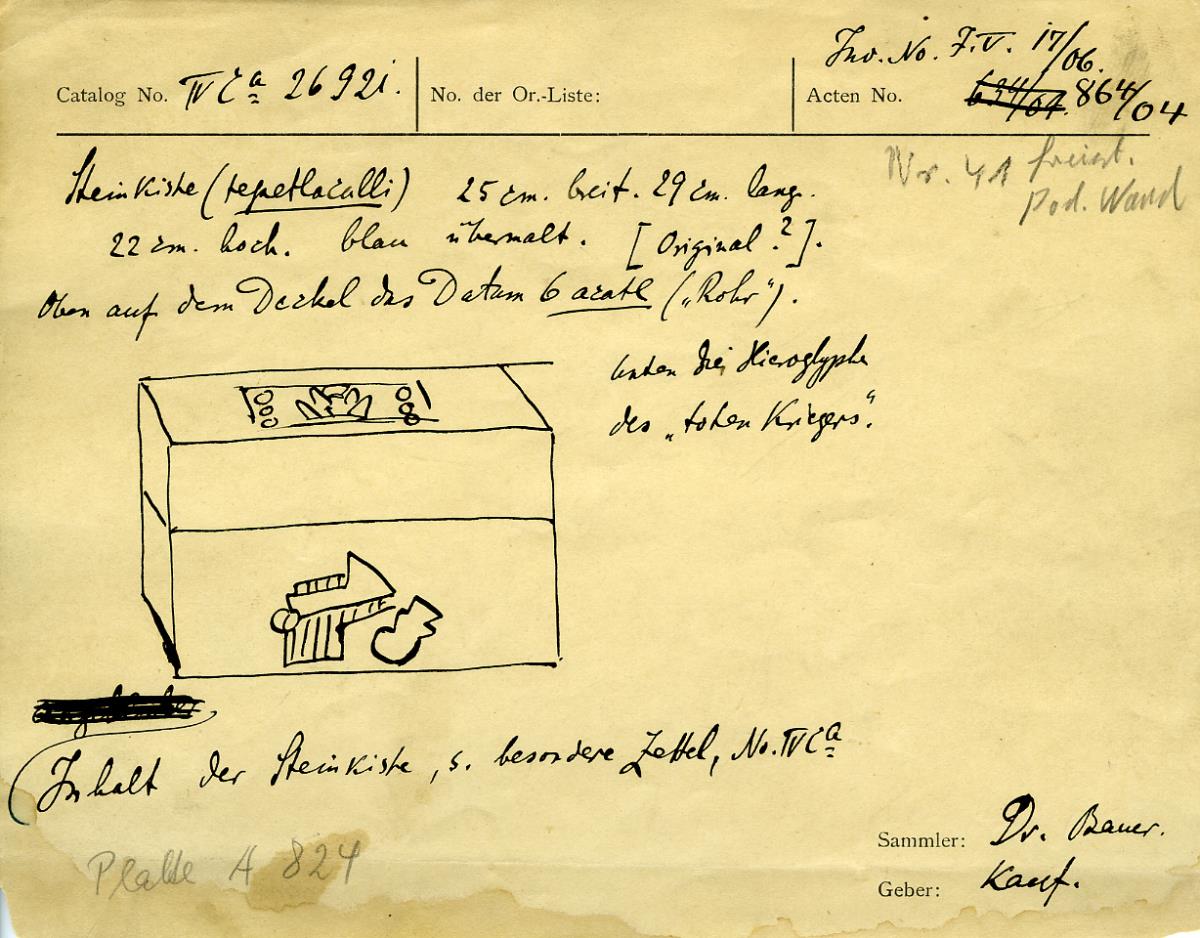 Inv. No. I.V. 17/06.
Catalog No. IV Ca 26921. No. der Or.-Liste: Acten No. 864/04
Nr. 41 freist.
Pod. Wand
Steinkiste (tepetlacalli) 25 cm. breit. 29 cm. lang.
22 cm. hoch. blau übermalt. [Original?].
Oben auf dem Deckel das Datum 6 acatl („Rohr").
unten die Hieroglyphe
des „toten Kriegers".
(Inhalt der Steinkiste, s. besondere Zettel, No. IV Ca
Platte A 824
Sammler: Dr. Bauer.
Geber: Kauf.